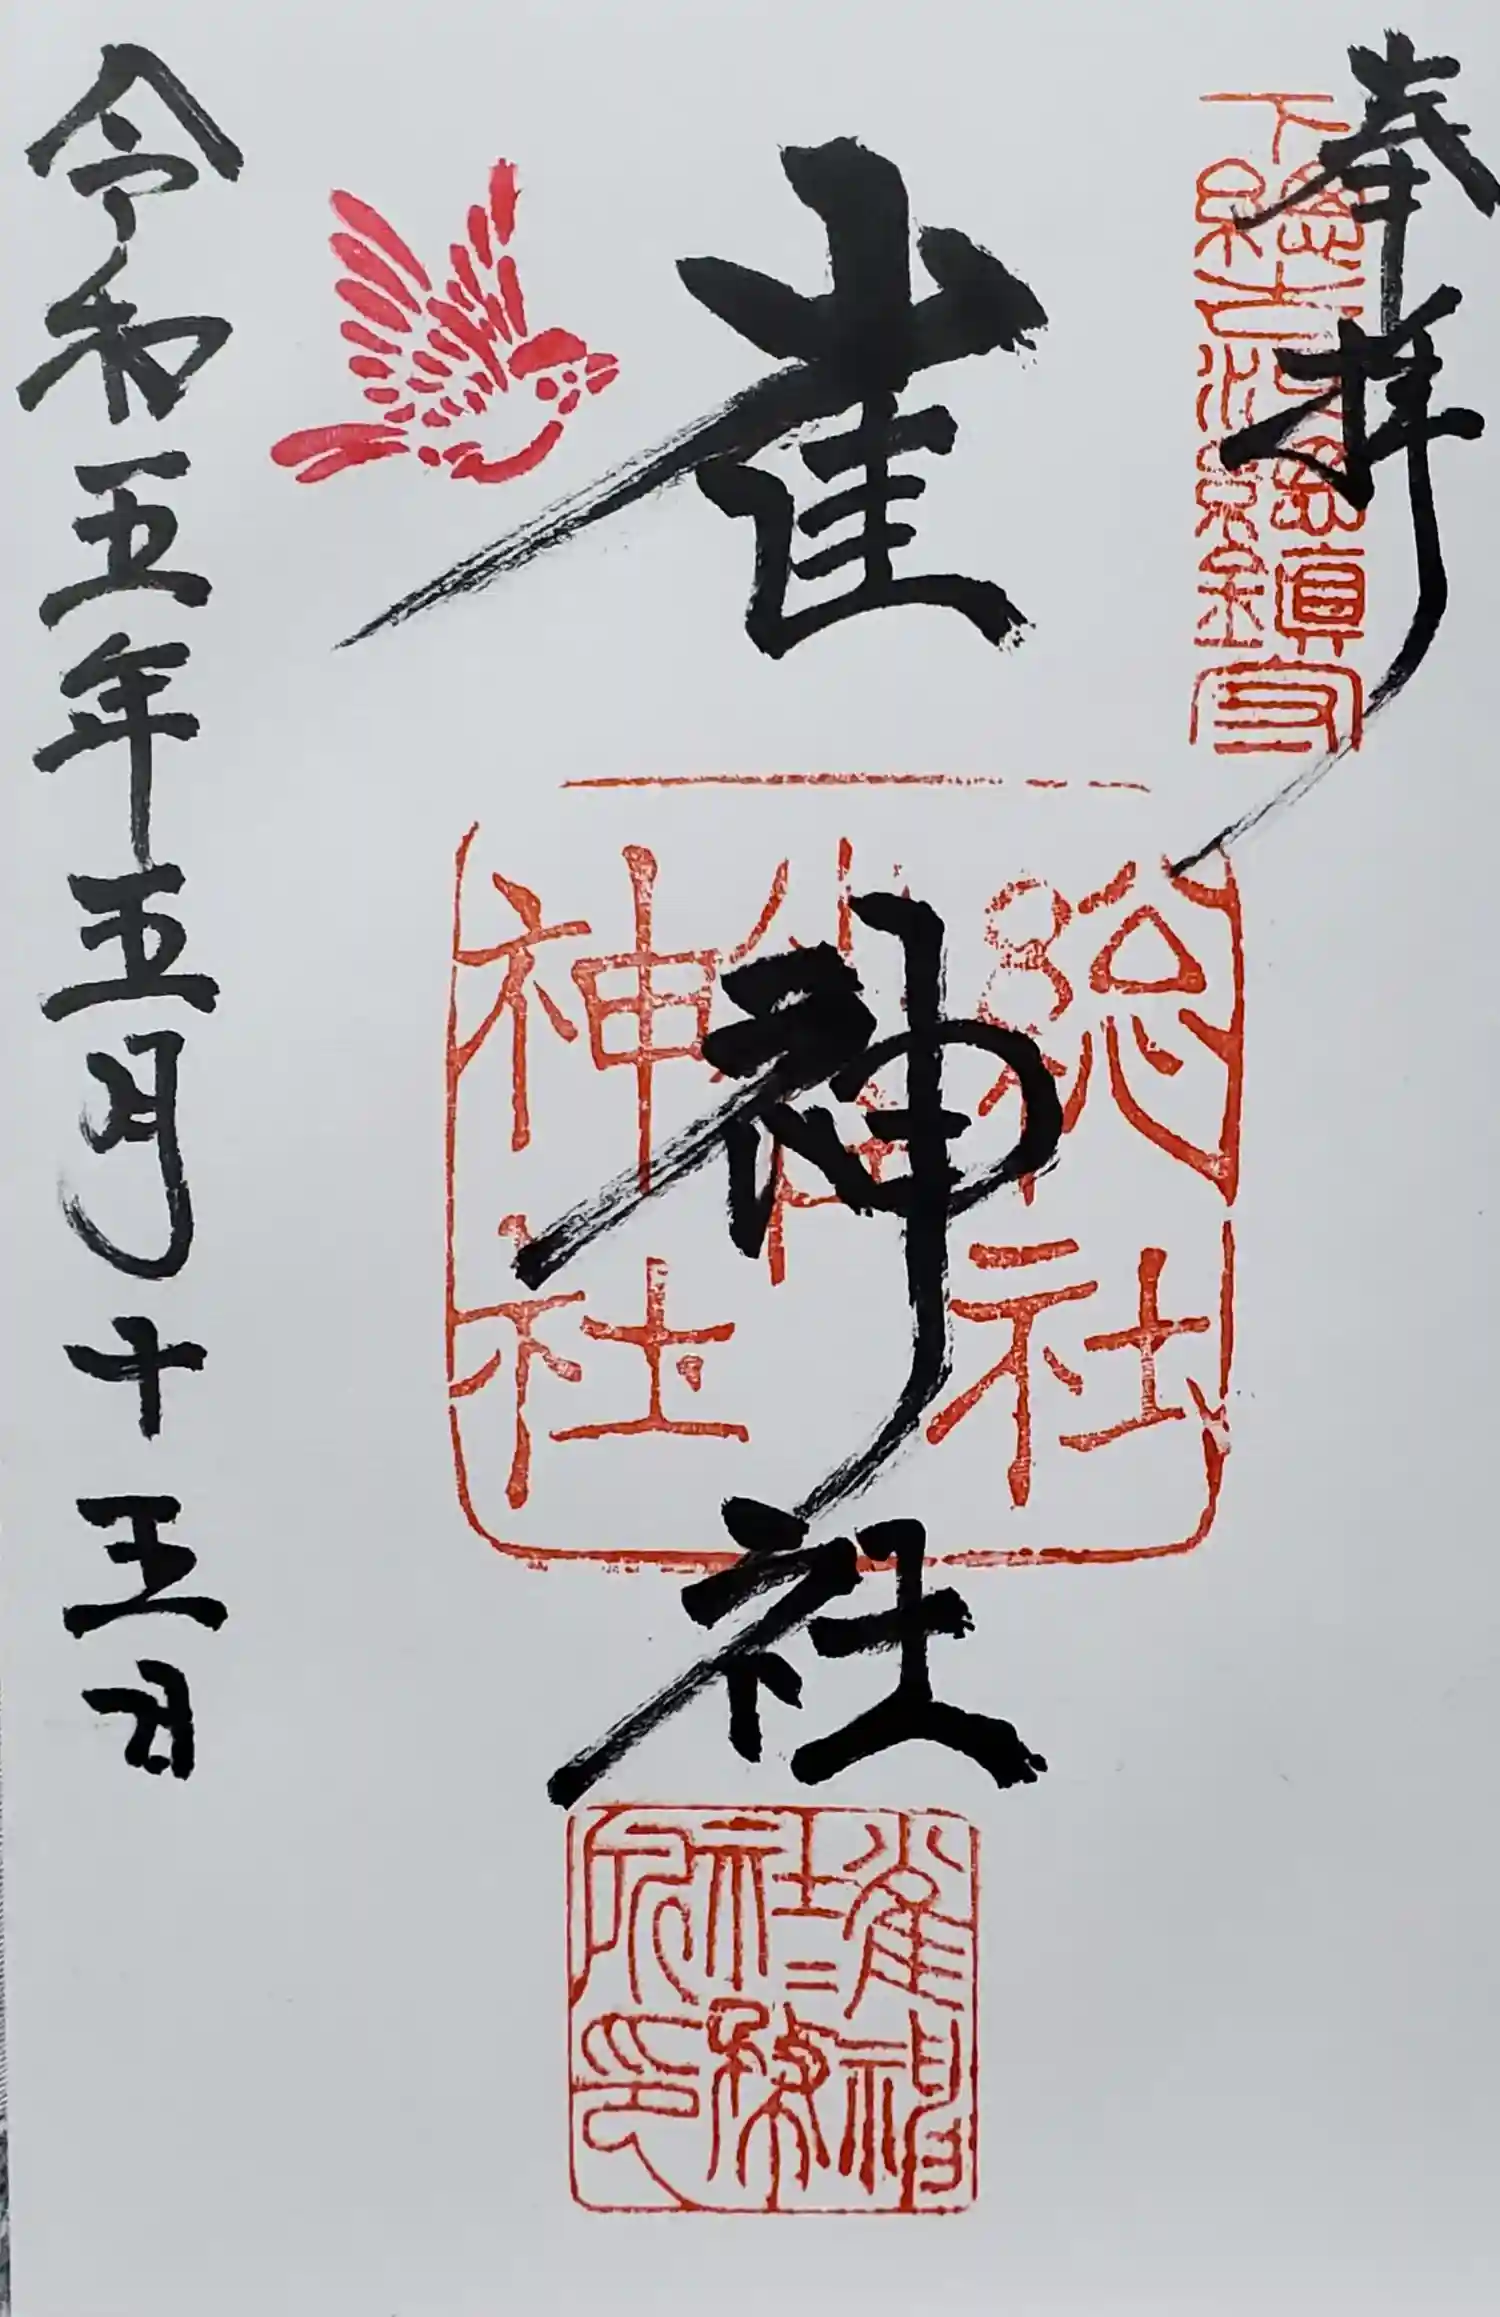 奉拝
下總古河總鎮守
雀神社
総社
雀
神社
雀神社々務所印
令和五年五月十五日